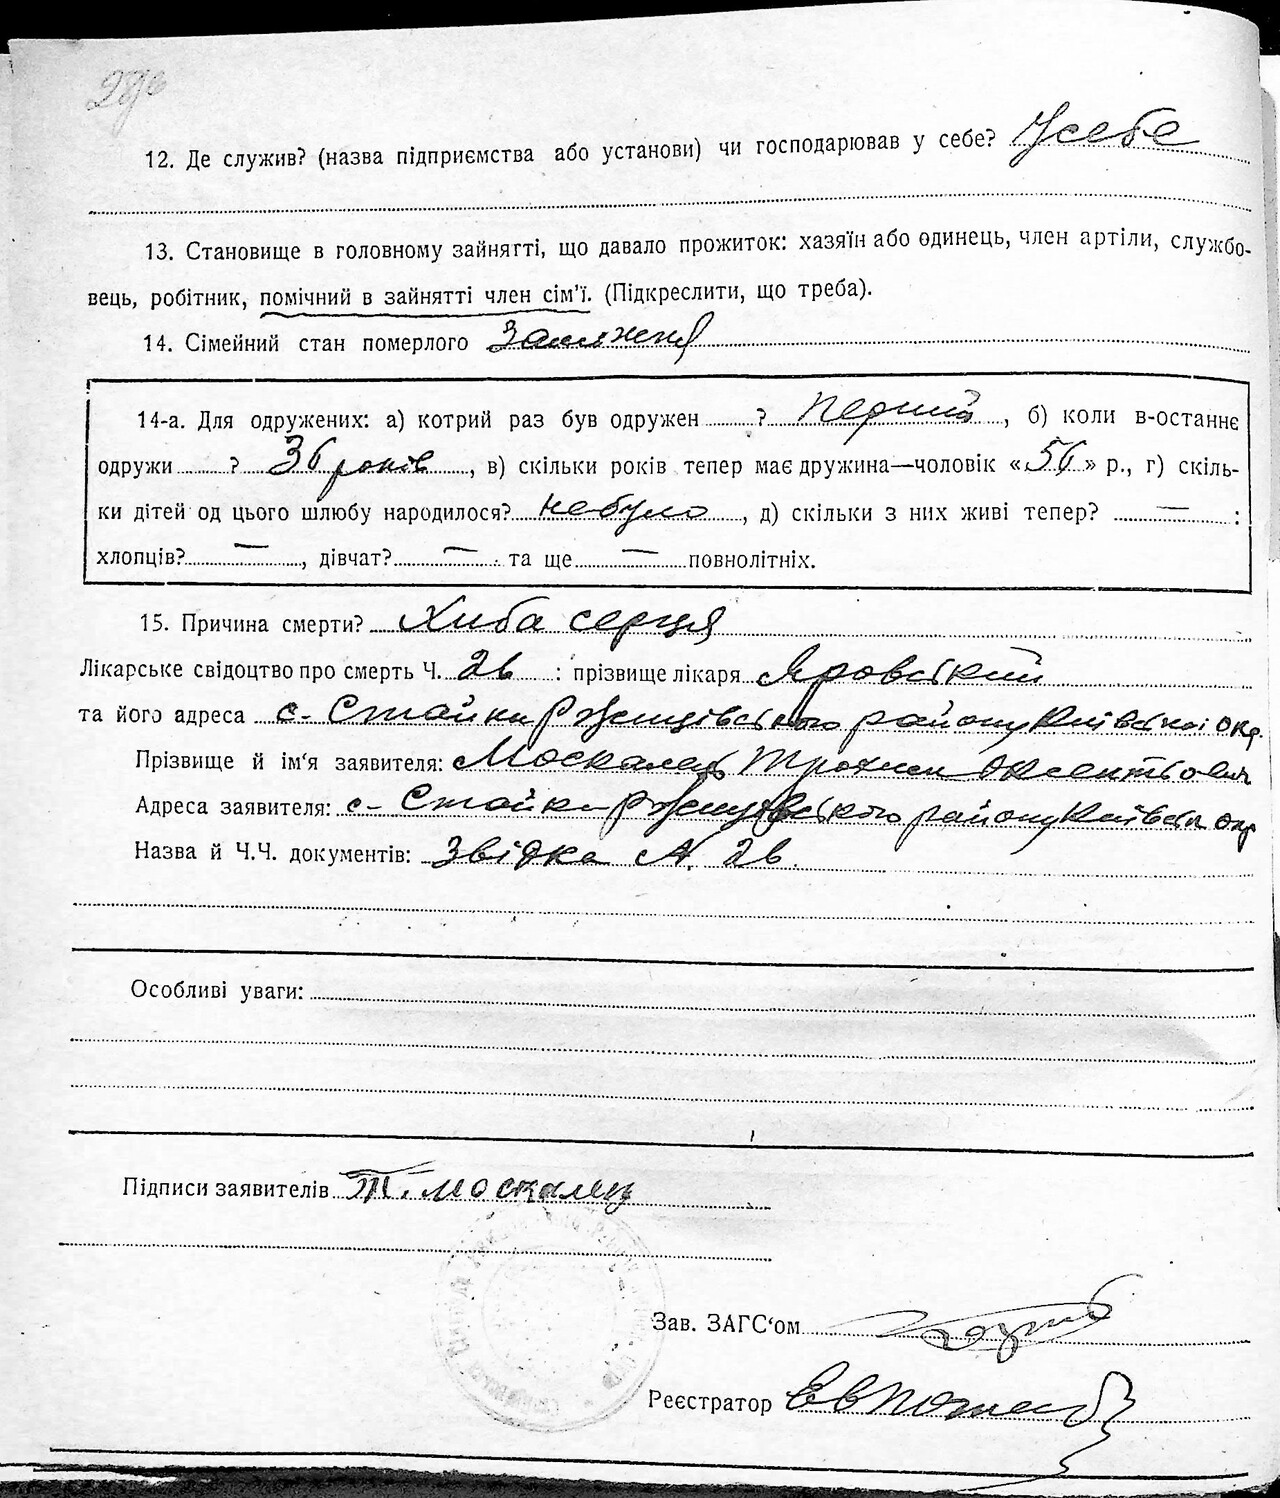 12. Де служив? (назва підприємства або установи) чи господарював у себе? Усебе
13. Становище в головному зайнятті, що давало прожиток: хазяїн або одинець, член артіли, службо-
вець, робітник, помічний в зайнятті член сім'ї. (Підкреслити, що треба).
14. Сімейний стан померлого Заміжня
14-а. Для одружених: а) котрий раз був одружен ? перший, б) коли в-останнє
одружи ? 36 років, в) скільки років тепер має дружина—чоловік «56» р., г) скіль-
ки дітей од цього шлюбу народилося? небуло, д) скільки з них живі тепер? — :
хлопців? —, дівчат? — та ще — повнолітніх.
15. Причина смерти? Хиба серця
Лікарське свідоцтво про смерть Ч. 26 : прізвище лікаря Яровський
та його адреса с- Стайки Ржищівського району Київської окр.
Прізвище й ім'я заявителя: Москалець Трохим Оксентьович
Адреса заявителя: с- Стайки Ржищівського району Київськ окр
Назва й Ч.Ч. документів: Звідка №. 26.
Особливі уваги:
Підписи заявителів Т. Москалец
Зав. ЗАГС'ом
Реєстратор